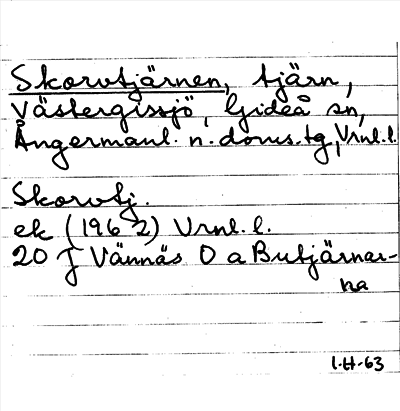 Skorvtjärnen, tjärn,
Västergissjö, Gideå sn,
Ångermanl. n. doms.tg, Vrnl.l.
Skorvtj.
ek (1962) Vrnl. l.
20 J Vännäs O a Butjärnar-
na
1.H-63